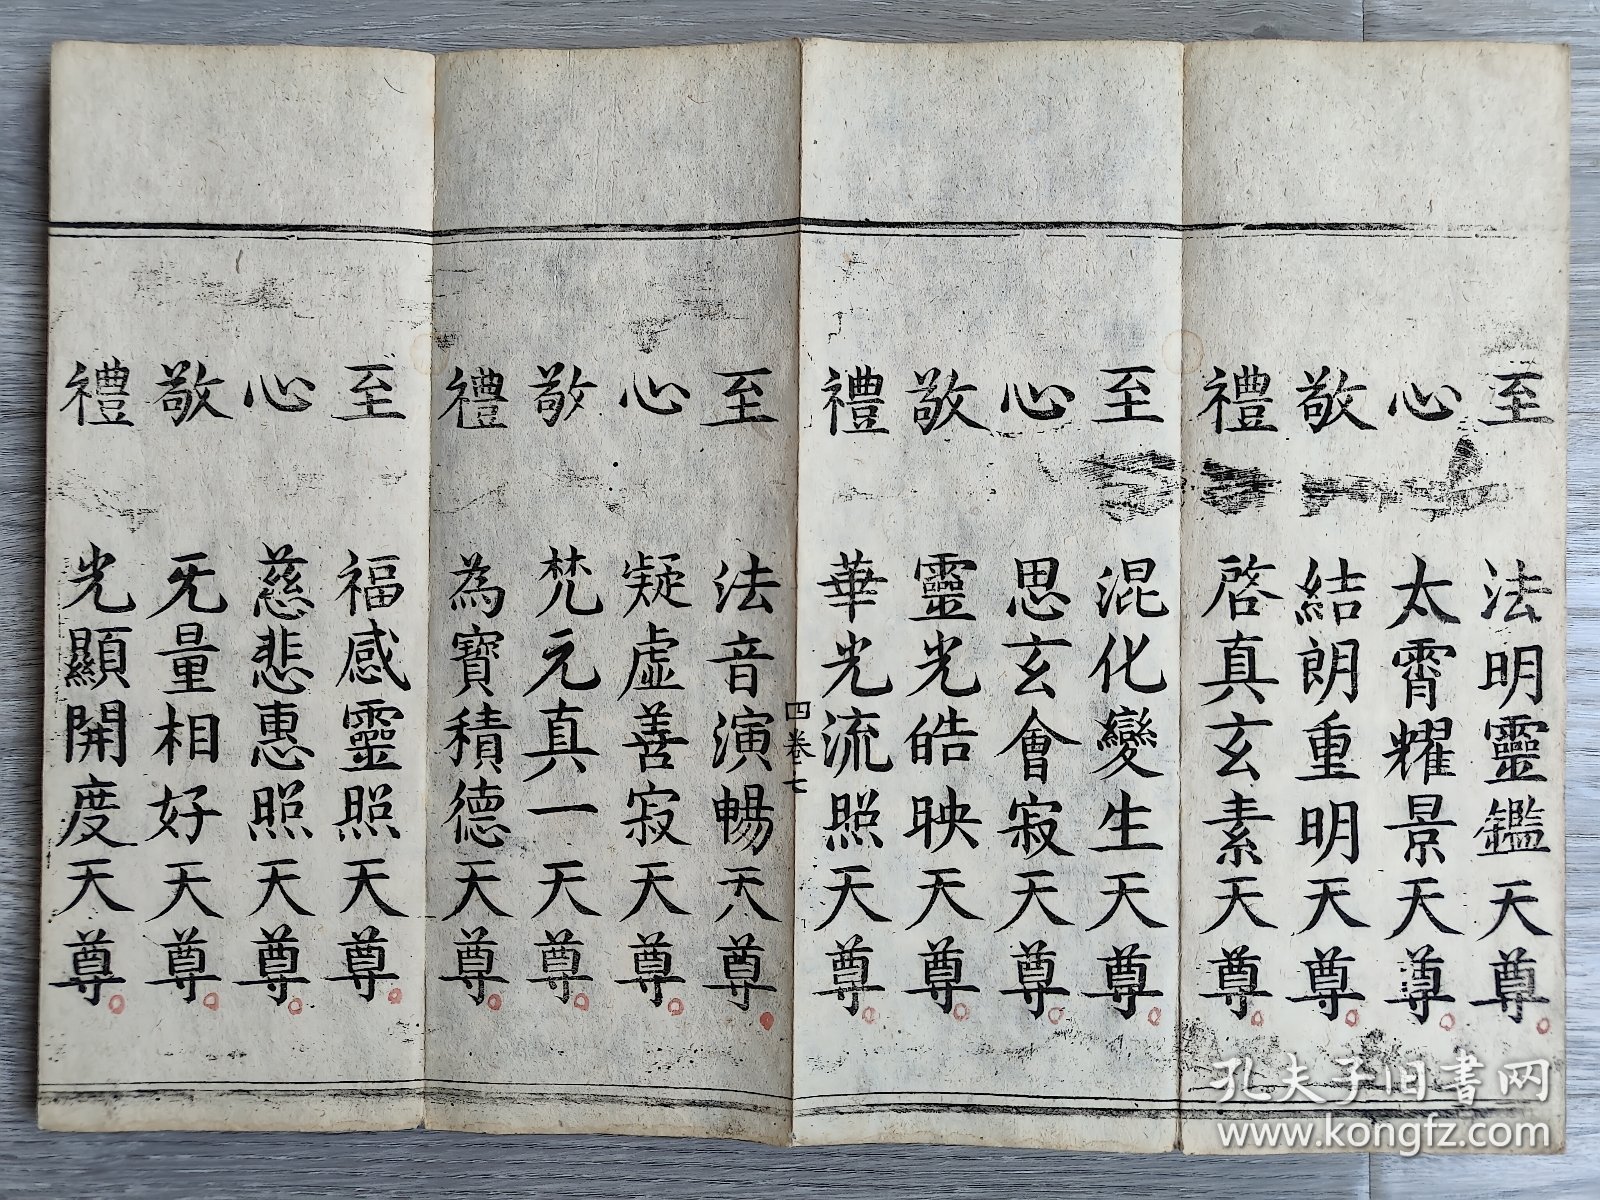 至 法明靈鑑天尊
心 太霄耀景天尊
敬 結朗重明天尊
禮 啓真玄素天尊
至 混化變生天尊
心 思玄會寂天尊
敬 靈光皓映天尊
禮 華光流照天尊
四卷七
至 法音演暢天尊
心 疑虛善寂天尊
敬 梵元真一天尊
禮 為寶積德天尊
至 福感靈照天尊
心 慈悲惠照天尊
敬 旡量相好天尊
禮 光顯開度天尊
孔夫子旧书网
www.kongfz.com